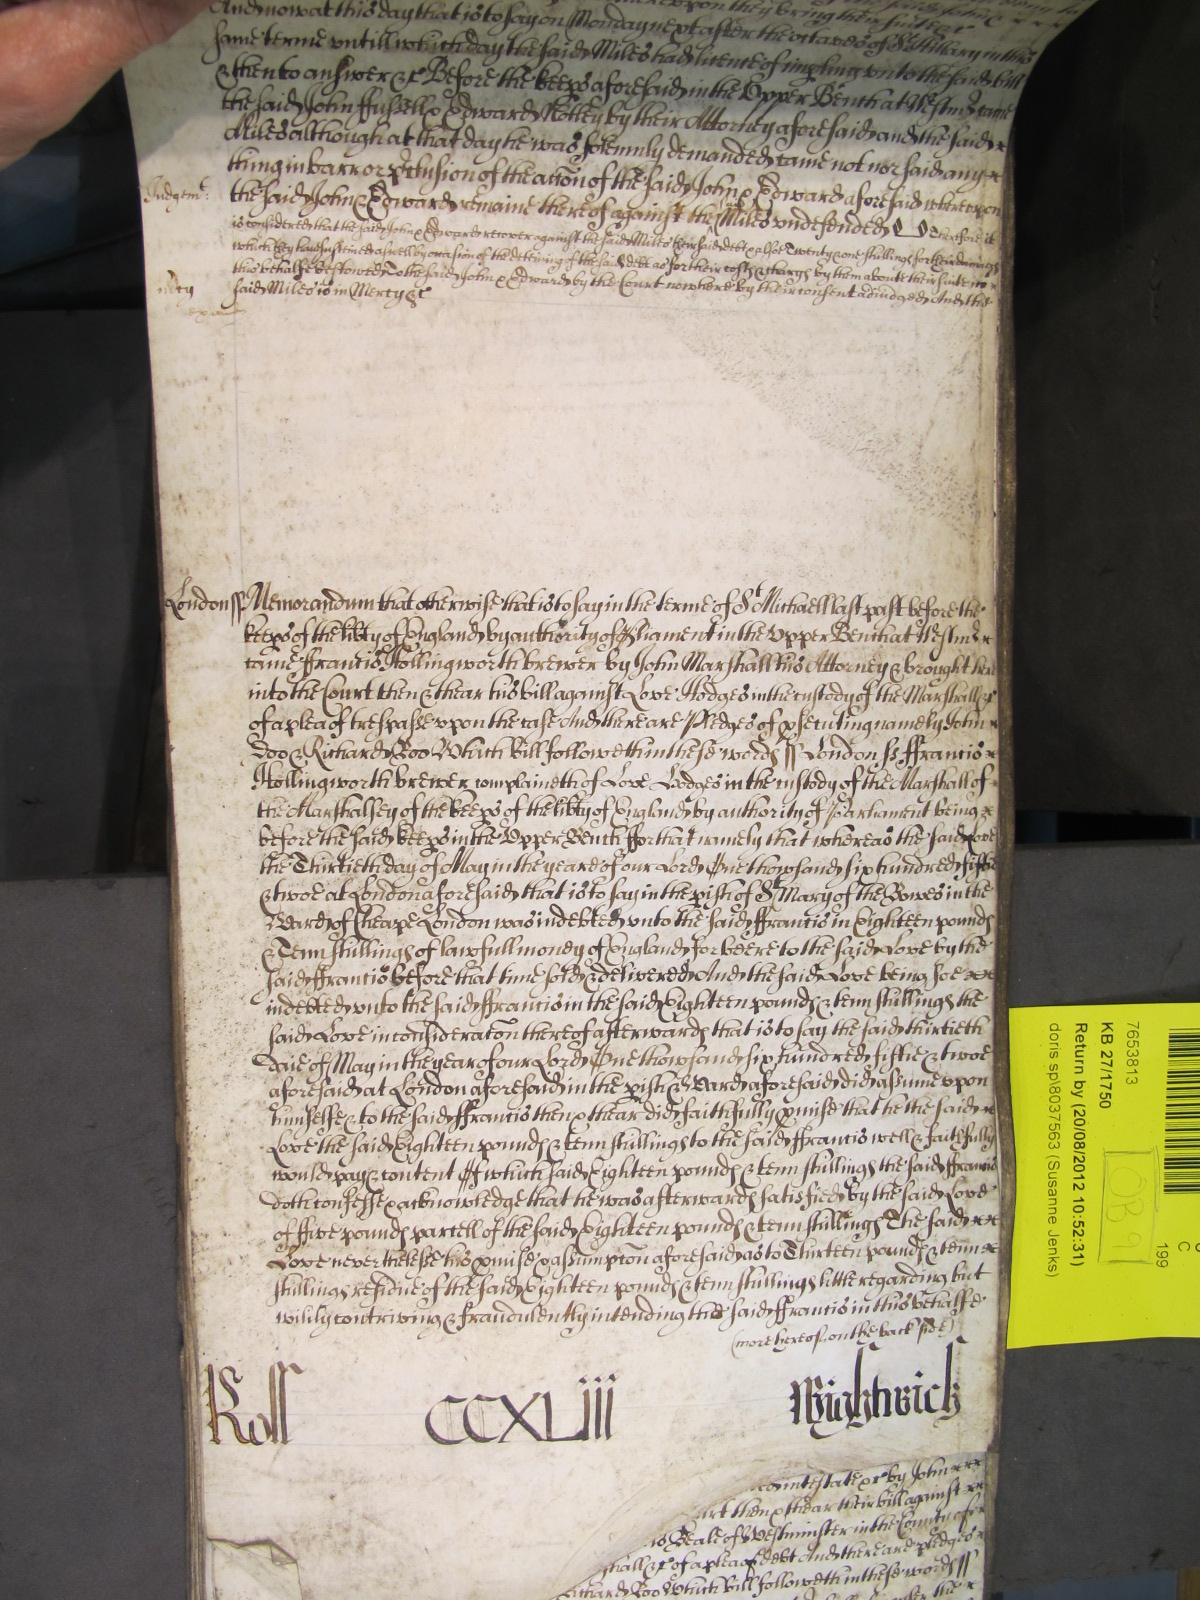 And now at this day that is to say on Monday next after the octaves of St Hillary in this
same terme untill which day the said Miles had licence of impling unto the said bill
& then to answer &c Before the keeps aforesaid in the Upper Bench at Westmr came
the said John ffussell & Edward Notley by their Attorney aforesaid and the said
Miles although at that day he was solemnly demanded came not nor said any
thing in barr or pclusion of the accon of the said John & Edward aforesaid whereupon
Judgemt: the said John & Edward remaine thereof against the Miles undefended Therefore it
is considered that the said John & Edward recover against the said Miles their said debt & alsoe Twenty one shillings for their damages
which they had susteined aswell by occasion of the deteining of the said debt as for their costs & chargs by them about their suite in
this behalfe bestowed to the said John & Edward by the Court now here by their consent adiudged And the
mcy said Miles is in Mercy &c
London ss Memorandum that otherwise that is to say in the terme of St Michaell last past before the
keeps of the libty of England by authority of Pliament in the Upper Bench at Westmr
came ffrancis Hollingworth brewer by John Marshall his Attorney & brought here
into the Court then & thear his bill against Love Hodges in the custody of the Marshall &c
of a plea of trespasse upon the case And there are Pledges of psecuting namely John
Doo & Richard Roo Which bill followeth in these words ss London ss ffrancis
Hollingworth brewer complaineth of Love Hodges in the custody of the Marshall of
the Marshalsey of the keeps of the libty of England by authority of Parliament being
before the said keeps in the Upper Bench ffor that namely that whereas the said Love
the Thirtieth day of May in the yeare of our Lord One thowsand six hundred fiftie
& twoe at London aforesaid that is to say in the pish of St Mary of the Bowes in the
Ward of Cheape London was indebted unto the said ffrancis in Eighteen pounds
& Tenn shillings of lawfull money of England for beere to the said Love by the
said ffrancis before that time sold & delivered And the said Love being soe
indebted unto the said ffrancis in the said Eighteen pounds & tenn shillings the
said Love in consideracon thereof afterwards that is to say the said thirtieth
daie of May in the year of our Lord One thowsand six hundred fiftie & twoe
aforesaid at London aforesaid in the pish & Ward aforesaid did assume upon
himselfe & to the said ffrancis then & thear did faithfully pmise that he the said
Love the said Eighteen pounds & tenn shillings to the said ffrancis well & faithfully
would pay & content Of which said Eighteen pounds & tenn shillings the said ffrancis
doth confesse & acknowledge that he was afterwards satisfied by the said Love
of five pounds parcell of the said Eighteen pounds & tenn shillings The said
Love nevertheless his pmise & assumpcon aforesaid as to Thirteen pounds & tenn
shillings residue of the said Eighteen pounds & tenn shillings little regarding but
wilily contriving & fraudulently intending the said ffrancis in this behalfe
(more hereof on the back side)
Roll CCXLiii Wightwick
comitestate &c by John
Court then & thear their bill against
Beale of Westminster in the County afor
shall &c of a plea of debt And there are pledges
Richard Roo Which bill followeth in these words ss
7653813
KB 27/1750
Return by (20/08/2012 10:52:31)
doris sp\8037563 (Susanne Jenks)
199
C